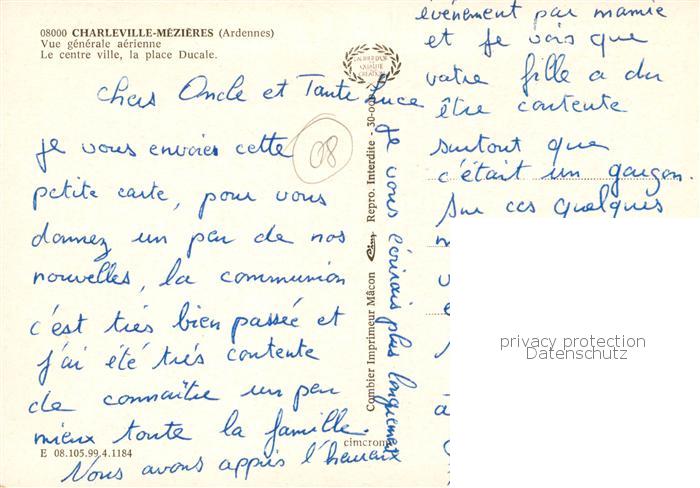 08000 CHARLEVILLE-MÉZIÈRES (Ardennes)
Vue générale aérienne
Le centre ville, la place Ducale.
chers Oncle et Tante Luce
je vous envoies cette
petite carte, pour vous
donnez un peu de nos
nouvelles, la communion
c'est très bien passée et
j'ai été très contente
de connaître un peu
mieux toute la famille.
Nous avons appris l'heureux
événement par mamie
et je vois que
votre fille a du
être contente
surtout que
c'était un garçon.
Sur ces quelques
je vous écrirais plus longuement
08
Combier Imprimeur Mâcon Cim Repro. Interdite - 30-00
cimcrom
E 08.105.99.4.1184
privacy protection
Datenschutz